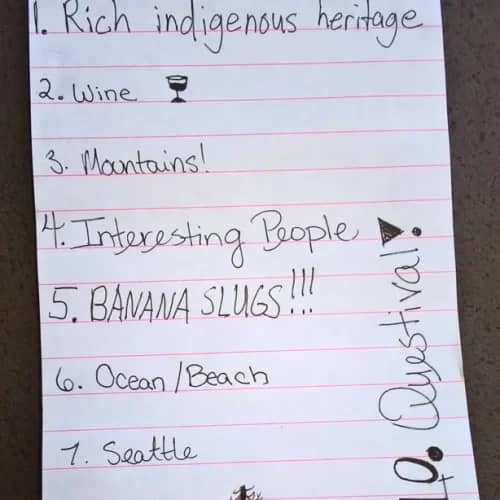 1. Rich indigenous heritage
2. Wine
3. Mountains!
4. Interesting People
5. BANANA SLUGS!!!
6. Ocean/Beach
7. Seattle
0. Questival!